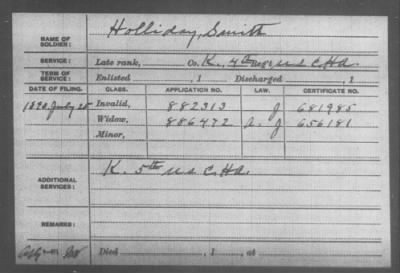 NAME OF SOLDIER: Holliday, Smith
SERVICE: Late rank, Co. K, 4th Reg't U S C H A.
TERM OF SERVICE: Enlisted , 1 Discharged , 1
DATE OF FILING. CLASS. APPLICATION NO. LAW. CERTIFICATE NO.
1890 July 25 Invalid, 882313 J 681985
Widow, 886472 J 656181
Minor,
ADDITIONAL SERVICES: K. 5th U S C. H A.
REMARKS:
Died , 1 , at